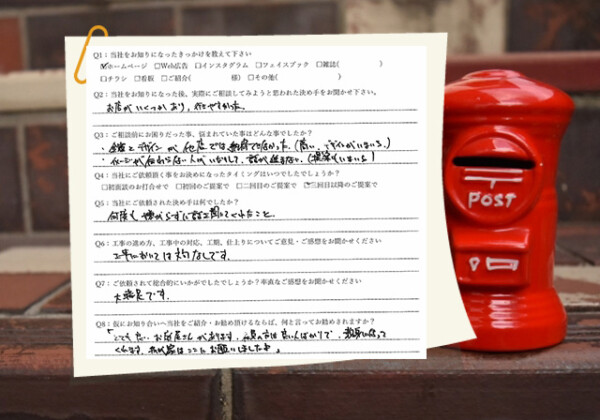 Q1：当社をお知りになったきっかけを教えて下さい
☑ホームページ □Web広告 □インスタグラム □フェイスブック □雑誌( )
□チラシ □看板 □ご紹介( 様) □その他( )
Q2：当社をお知りになった後。実際にご相談してみようと思われた決め手をお聞かせ下さい。
お店がいくつかあり、行きやすかった。
Q3：ご相談前にお困りだった事、悩まれていた事はどんな事でしたか？
・金額とデザインが他店では
Q4：当社にご依頼頂く事をお決めになったタイミングはいつでしたでしょうか？
□初面談のお打合せで □初回のご提案で □二回目のご提案で ☑三回目以降のご提案で
Q5：当社にご依頼された決め手は何でしたか？
何度も嫌がらずに話を聞いてくれたこと。
Q6：工事の進め方、工事中の対応、工期、仕上りについてご意見・ご感想をお聞かせください
工事においては文句なしです。
Q7：ご依頼されて総合的にいかがでしたでしょうか？率直なご感想をお聞かせください
大満足です。
Q8：仮にお知り合いへ当社をご紹介・お勧め頂けるならば、何と言ってお勧めされますか？
「とても良いお店屋さんがあります。
くれます。我が家はここにお願いしましたよ。」
POST